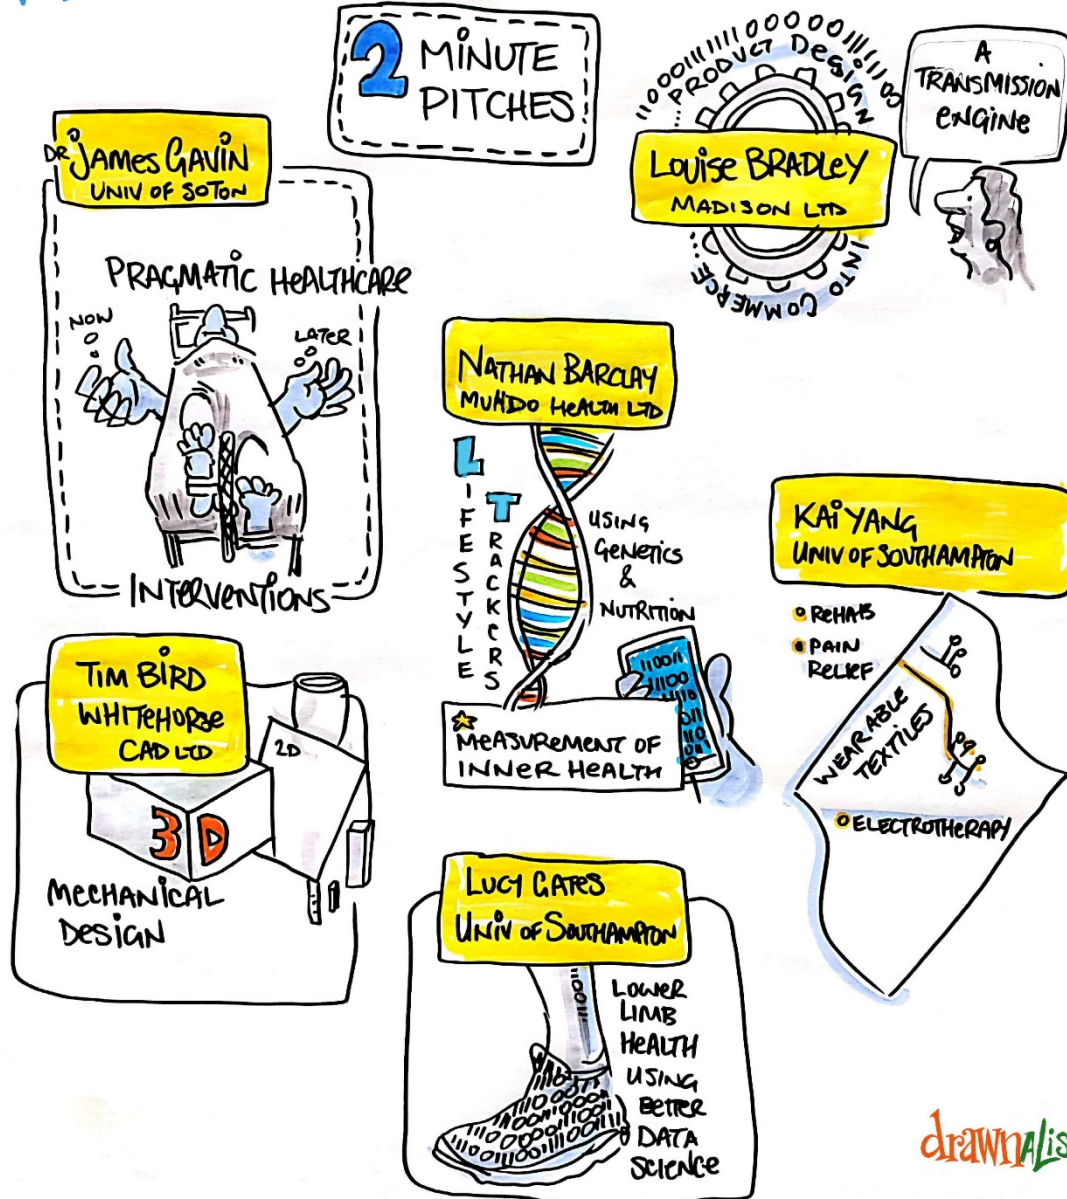 2 MINUTE
PITCHES
DR JAMES GAVIN
UNIV OF SOTON
PRAGMATIC HEALTHCARE
NOW
LATER
INTERVENTIONS
PRODUCT DESIGN
LOUISE BRADLEY
MADISON LTD
INTO COMMERCE...
A
TRANSMISSION
ENGINE
NATHAN BARCLAY
MUHDO HEALTH LTD
LIFESTYLE
TRACKERS
USING
GENETICS
&
NUTRITION
110011
11100
MEASUREMENT OF
INNER HEALTH
KAI YANG
UNIV OF SOUTHAMPTON
REHAB
PAIN
RELIEF
WEARABLE
TEXTILES
ELECTROTHERAPY
TIM BIRD
WHITEHORSE
CAD LTD
2D
3D
MECHANICAL
DESIGN
LUCY GATES
UNIV OF SOUTHAMPTON
LOWER
LIMB
HEALTH
USING
BETTER
DATA
SCIENCE
drawnalis